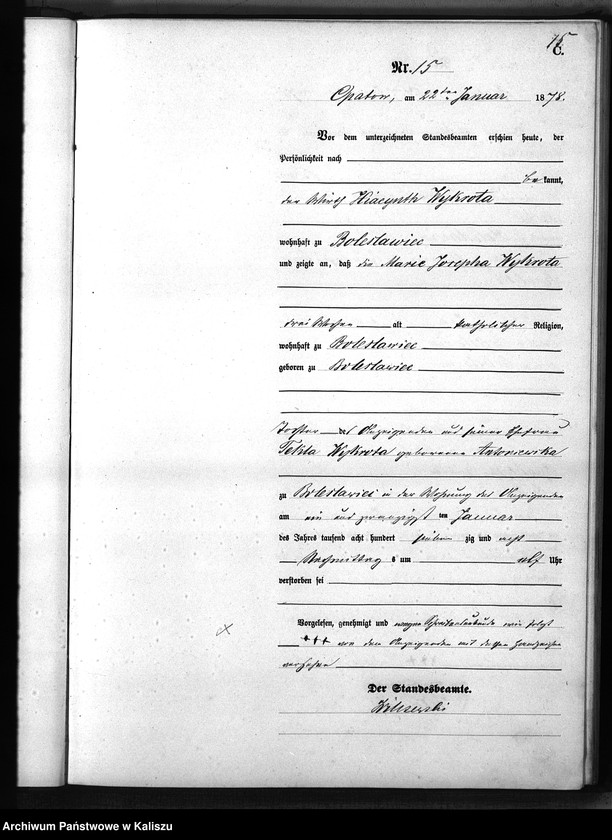 15
C.
Nr. 15
Opatow, am 22ten Januar 1878.
Vor dem unterzeichneten Standesbeamten erschien heute, der
Persönlichkeit nach
bekannt,
der Wirth Hiacynth Wykrota
wohnhaft zu Boleslawiec
und zeigte an, daß die Marie Josepha Wykrota
drei Wochen alt katholischer Religion,
wohnhaft zu Boleslawiec
geboren zu Boleslawiec
Tochter des Anzeigenden und seiner Ehefrau
Tekla Wykrota geborenen Antoniewska
zu Boleslawiec in der Wohnung des Anzeigenden
am ein und zwanzigsten Januar
des Jahres tausend acht hundert sieben zig und acht
Nachmittags um elf Uhr
verstorben sei
Vorgelesen, genehmigt und wegen Schreibensunkunde wie folgt
+++ von dem Anzeigenden mit dessen Handzeichen
versehen
Der Standesbeamte.
Archiwum Państwowe w Kaliszu